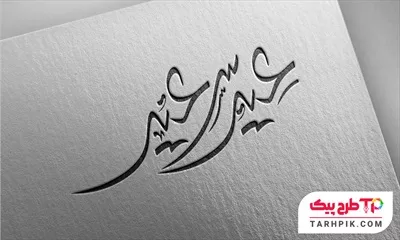 عید سعید
طرح پیک TP
TARHPIK.COM